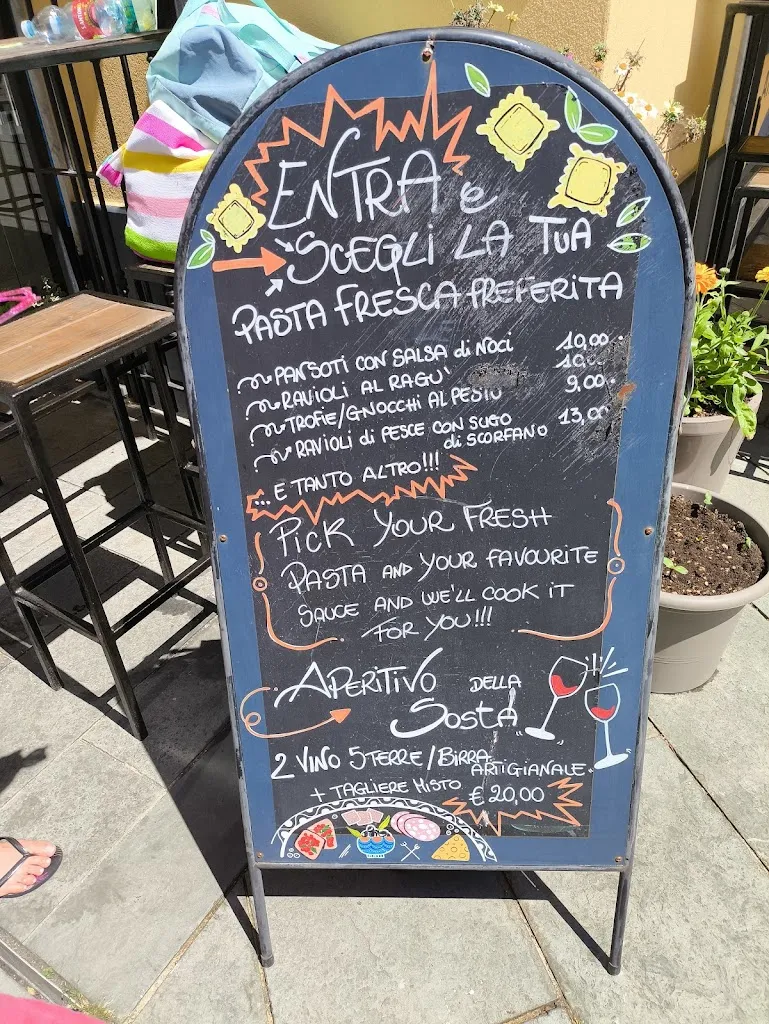 ENTRA e
SCEGLI LA TUA
PASTA FRESCA PREFERITA
PANSOTI CON SALSA di NOCI 10,00
RAVIOLI AL RAGU' 10,00
TROFIE/GNOCCHI AL PESTO 9,00
RAVIOLI di PESCE CON SUGO 13,00
di SCORFANO
... E TANTO ALTRO!!!
PICK YOUR FRESH
PASTA AND YOUR FAVOURITE
SAUCE AND WE'LL COOK IT
FOR YOU!!!
APERITIVO DELLA
SOSTA
2 VINO 5TERRE/BIRRA
ARTIGIANALE
+ TAGLIERE MISTO € 20,00